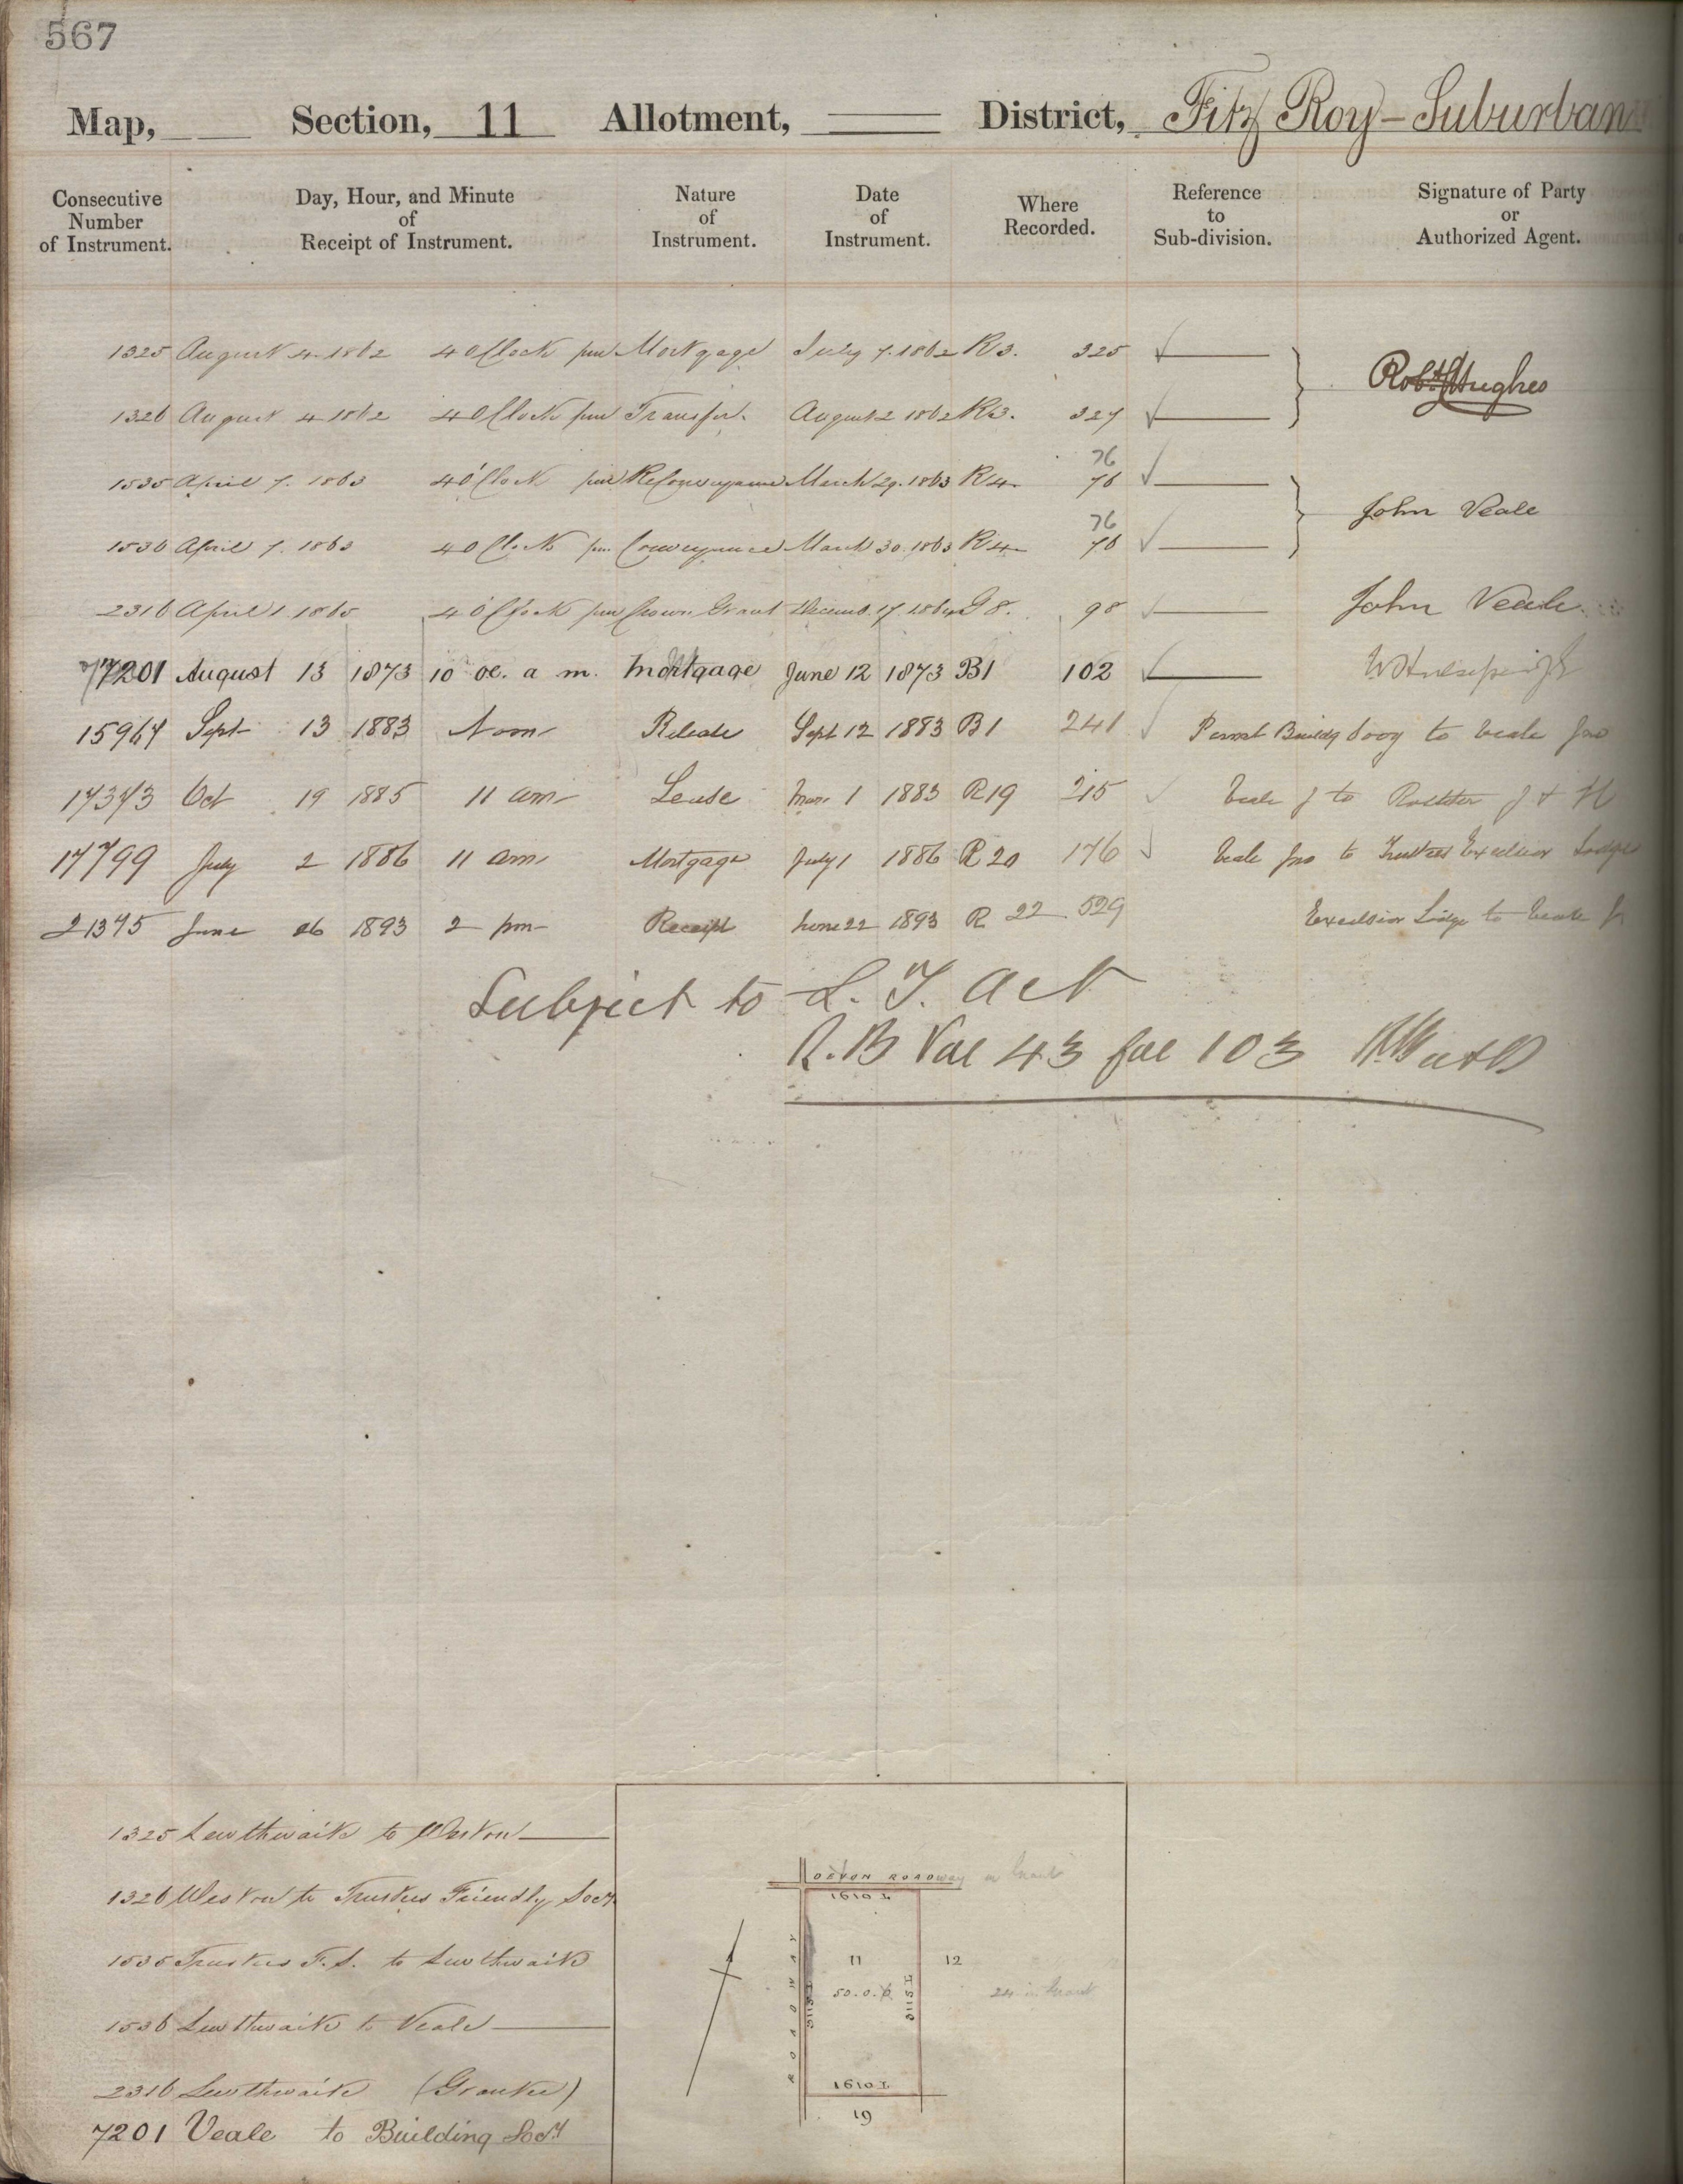 567
Map, Section, 11 Allotment, District, Fitz Roy - Suburban
Consecutive Number of Instrument.
Day, Hour, and Minute of Receipt of Instrument.
Nature of Instrument.
Date of Instrument.
Where Recorded.
Reference to Sub-division.
Signature of Party or Authorized Agent.
1325 August 4. 1862 4 OClock pm Mortgage July 7. 1862 R3. 325 Robt Hughes
1326 August 4 1862 4 OClock pm Transfer. August 2 1862 R3. 327
76
1535 April 7. 1863 4 O'Clock pm ReConveyance March 29. 1863 R4 76 John Veale
76
1536 April 7. 1863 4 OClock pm Conveyance March 30. 1863 R4 76
2316 April 1. 1865 4 O'Clock pm Crown Grant Decemb. 17. 1864 G8. 98 John Veale
7201 August 13 1873 10 oc. a m. Mortgage June 12 1873 B1 102
15964 Sept 13 1883 Noon Release Sept 12 1883 B1 241 Permt Buildg Socy to Veale Jno
17373 Oct 19 1885 11 am Lease 1 1883 R19 215 Veale J to J & H
17799 July 2 1886 11 am Mortgage July 1 1886 R 20 176 Veale Jno to Trustees Excelsior Lodge
21375 June 26 1893 2 pm Receipt June 22 1893 R 22 529 Excelsior Lodge to Veale J
Subject to L. T. Act
R.B Vol 43 fol 103
1325 Lewthwaite to Weston
1326 Weston to Trustees Friendly Socy.
1535 Trustees F.S. to Lewthwaite
1536 Lewthwaite to Veale
2316 Lewthwaite (Grantee)
7201 Veale to Building Socy
DEVON ROADway in Grant
1610 L
11
12
50.0.0
24 in Grant
ROADWAY
3115 L
3115 L
1610 L
19